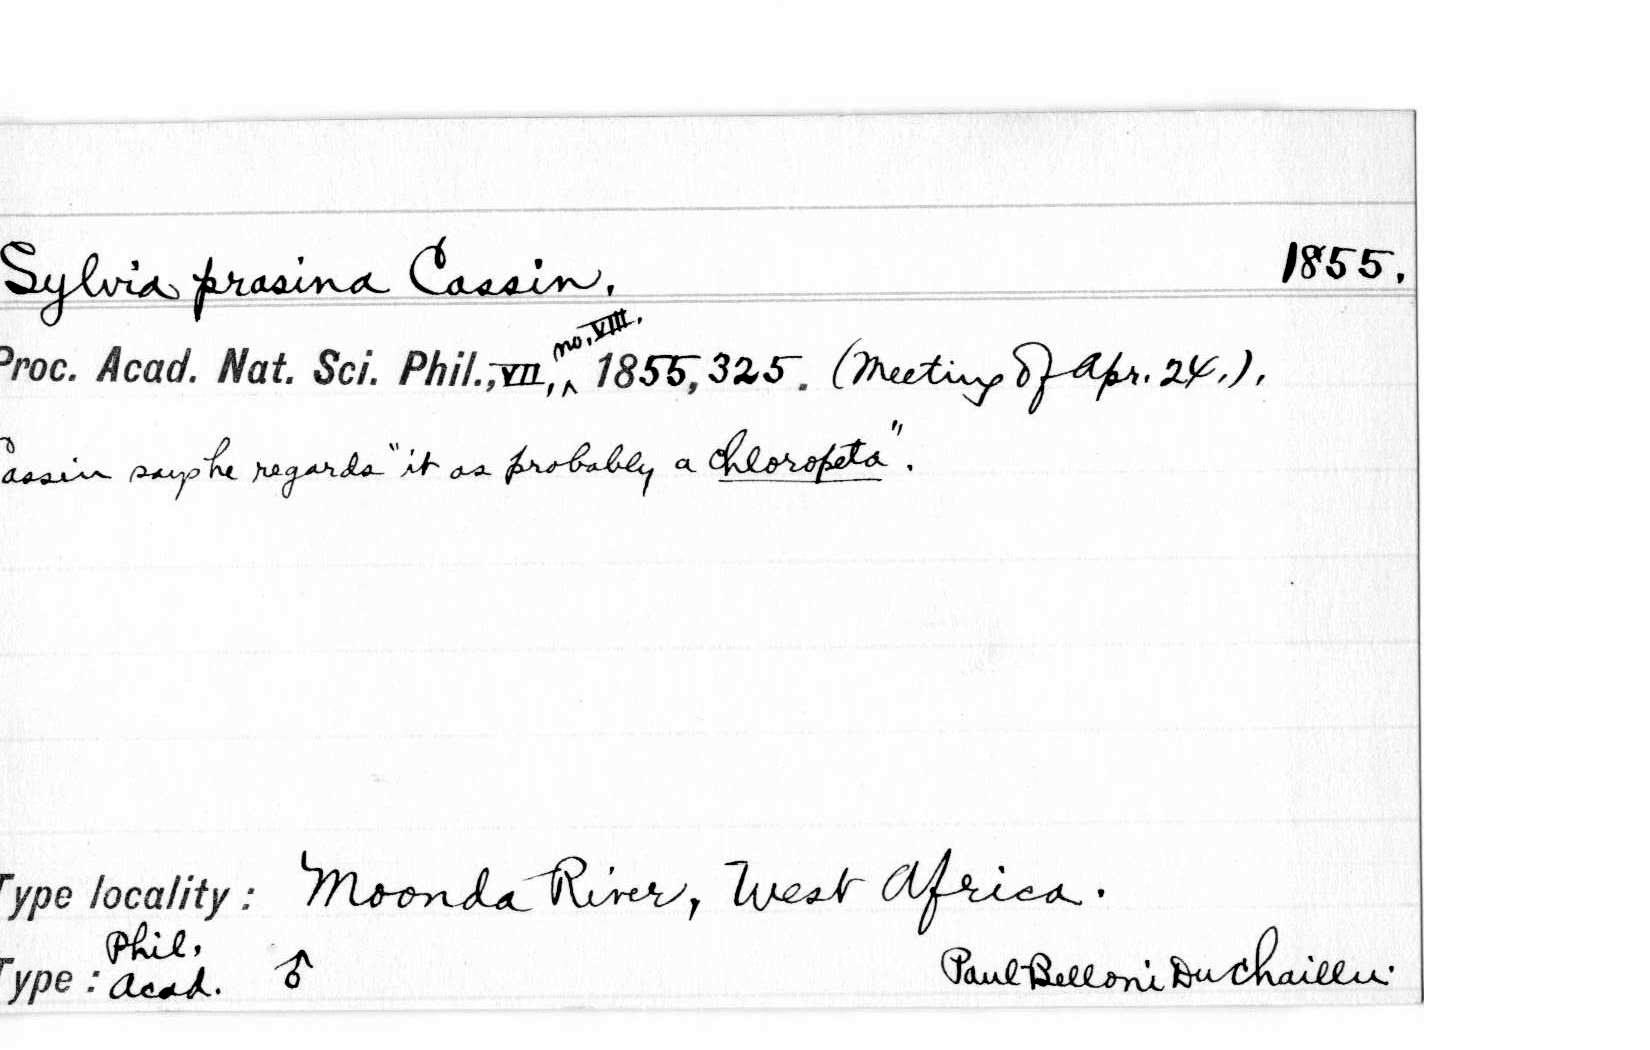 Sylvia prasina Cassin. 1855.
Proc. Acad. Nat. Sci. Phil., VII, ^ no. VIII. 1855, 325. (Meeting of Apr. 24.).
Cassin says he regards "it as probably a Chloropeta".
Type locality: Moonda River, West Africa.
Type: Phil. Acad. ♂ Paul Belloni Du Chaillu.